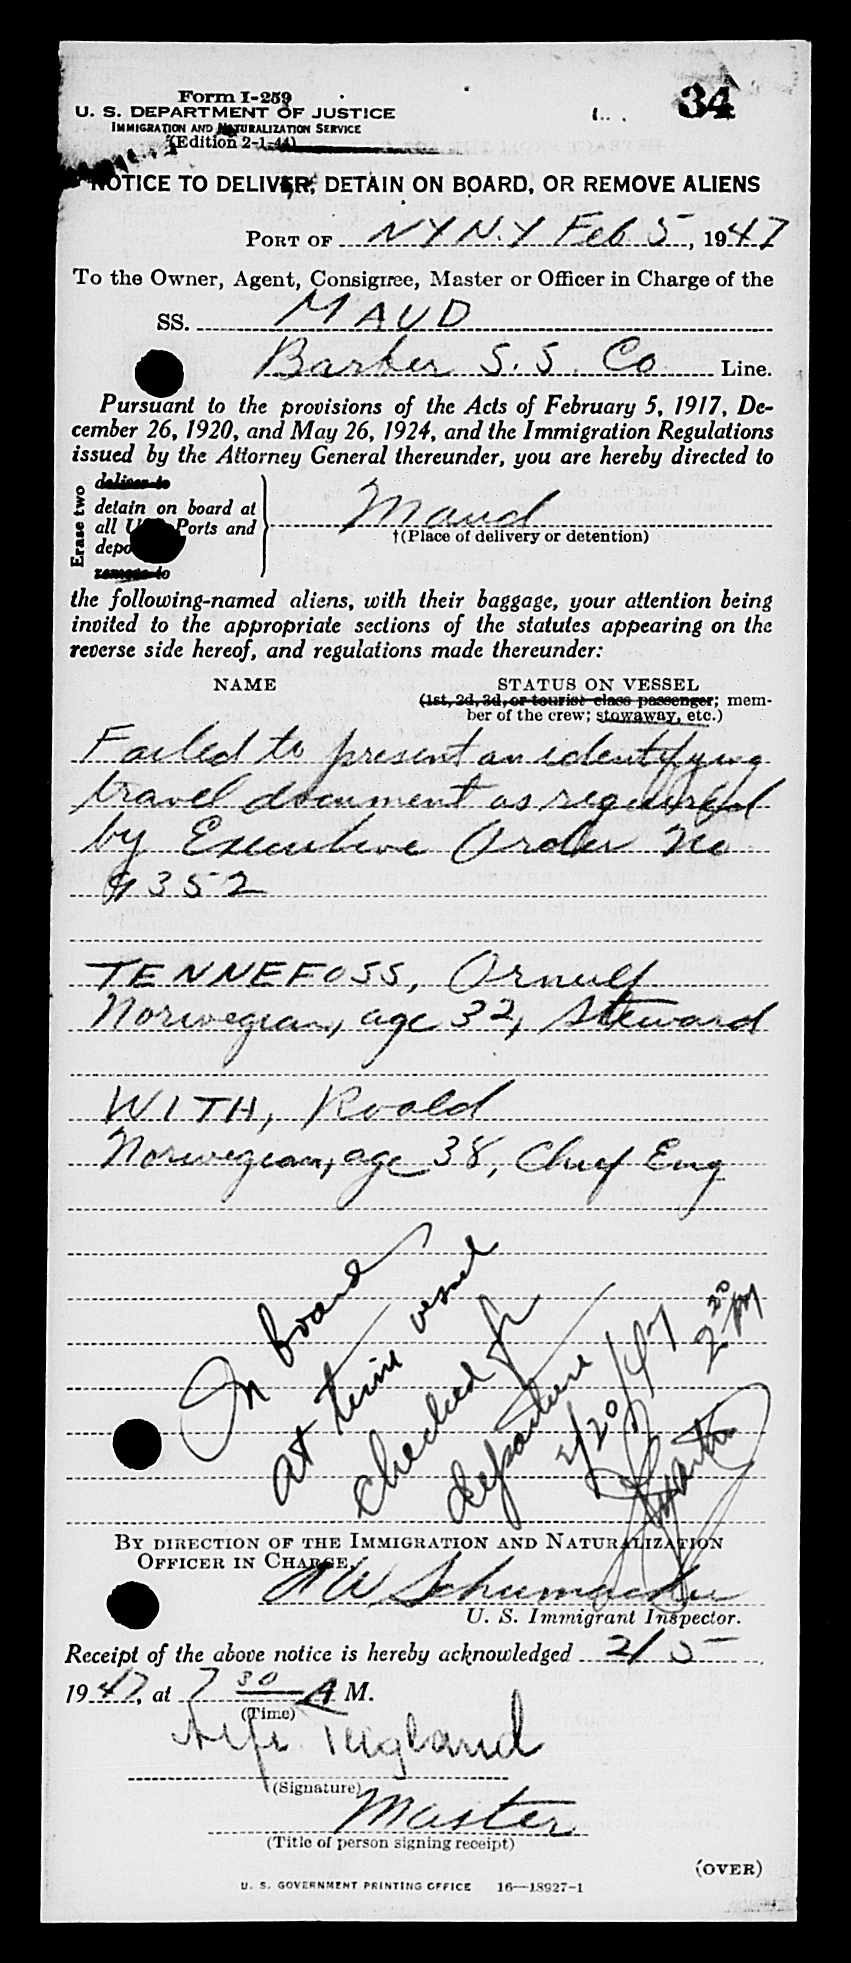 Form I-259
U. S. DEPARTMENT OF JUSTICE
IMMIGRATION AND NATURALIZATION SERVICE
(Edition 2-1-44)
34
NOTICE TO DELIVER, DETAIN ON BOARD, OR REMOVE ALIENS
PORT OF NY N.Y Feb 5, 1947
To the Owner, Agent, Consignee, Master or Officer in Charge of the
SS. MAUD
Barber S. S. Co Line.
Pursuant to the provisions of the Acts of February 5, 1917, De-
cember 26, 1920, and May 26, 1924, and the Immigration Regulations
issued by the Attorney General thereunder, you are hereby directed to
Erase two
deliver to
detain on board at
all U Ports and
depo
remove to
Maud
†(Place of delivery or detention)
the following-named aliens, with their baggage, your attention being
invited to the appropriate sections of the statutes appearing on the
reverse side hereof, and regulations made thereunder:
NAME STATUS ON VESSEL
(1st, 2d, 3d, or tourist class passenger; mem-
ber of the crew; stowaway, etc.)
Failed to present an identifying
travel document as required
by Executive Order No
9352
TENNEFOSS, Ornulf
Norwegian, age 32, Steward
WITH, Roald
Norwegian, age 38, Chief Eng
On board
at time vessel
checked for
departure
2/20/47
2 20 PM
BY DIRECTION OF THE IMMIGRATION AND NATURALIZATION
OFFICER IN CHARGE,
Schumacher
U. S. Immigrant Inspector.
Receipt of the above notice is hereby acknowledged 2/5
1947, at 7 30 A M.
(Time)
(Signature)
Master
(Title of person signing receipt)
(OVER)
U. S. GOVERNMENT PRINTING OFFICE 16—18927-1